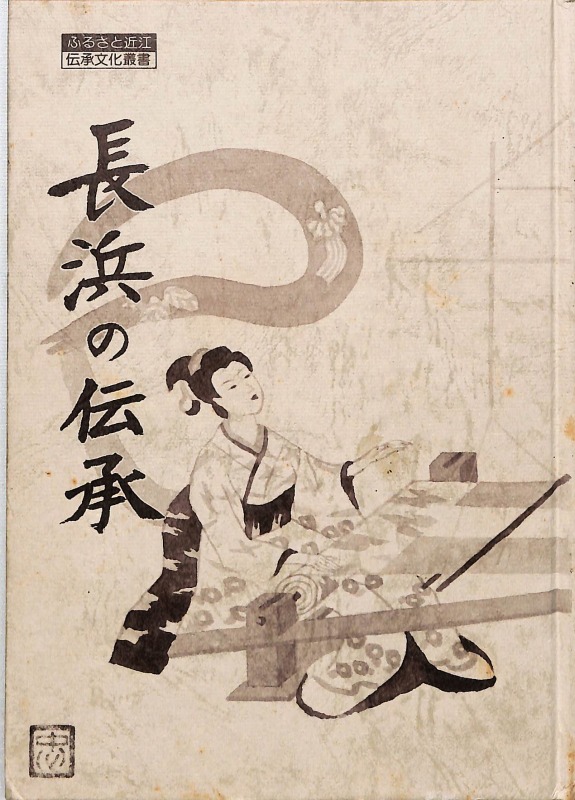 ふるさと近江
伝承文化叢書
長浜の伝承